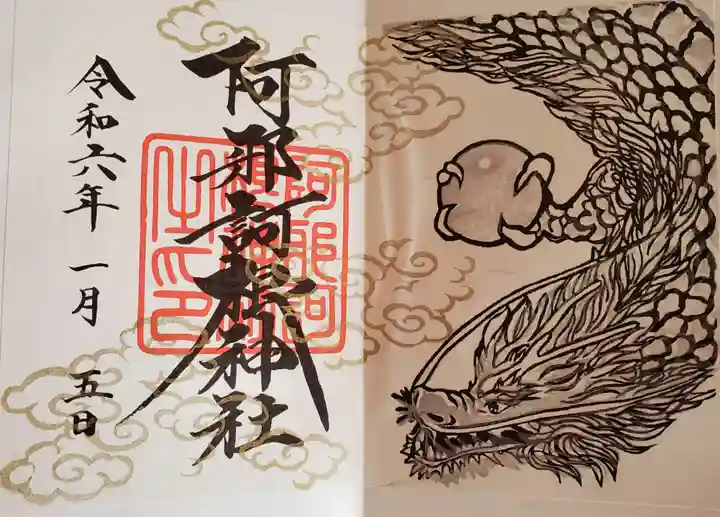 阿邪訶根神社
令和六年 一月 五日
阿邪訶
之印